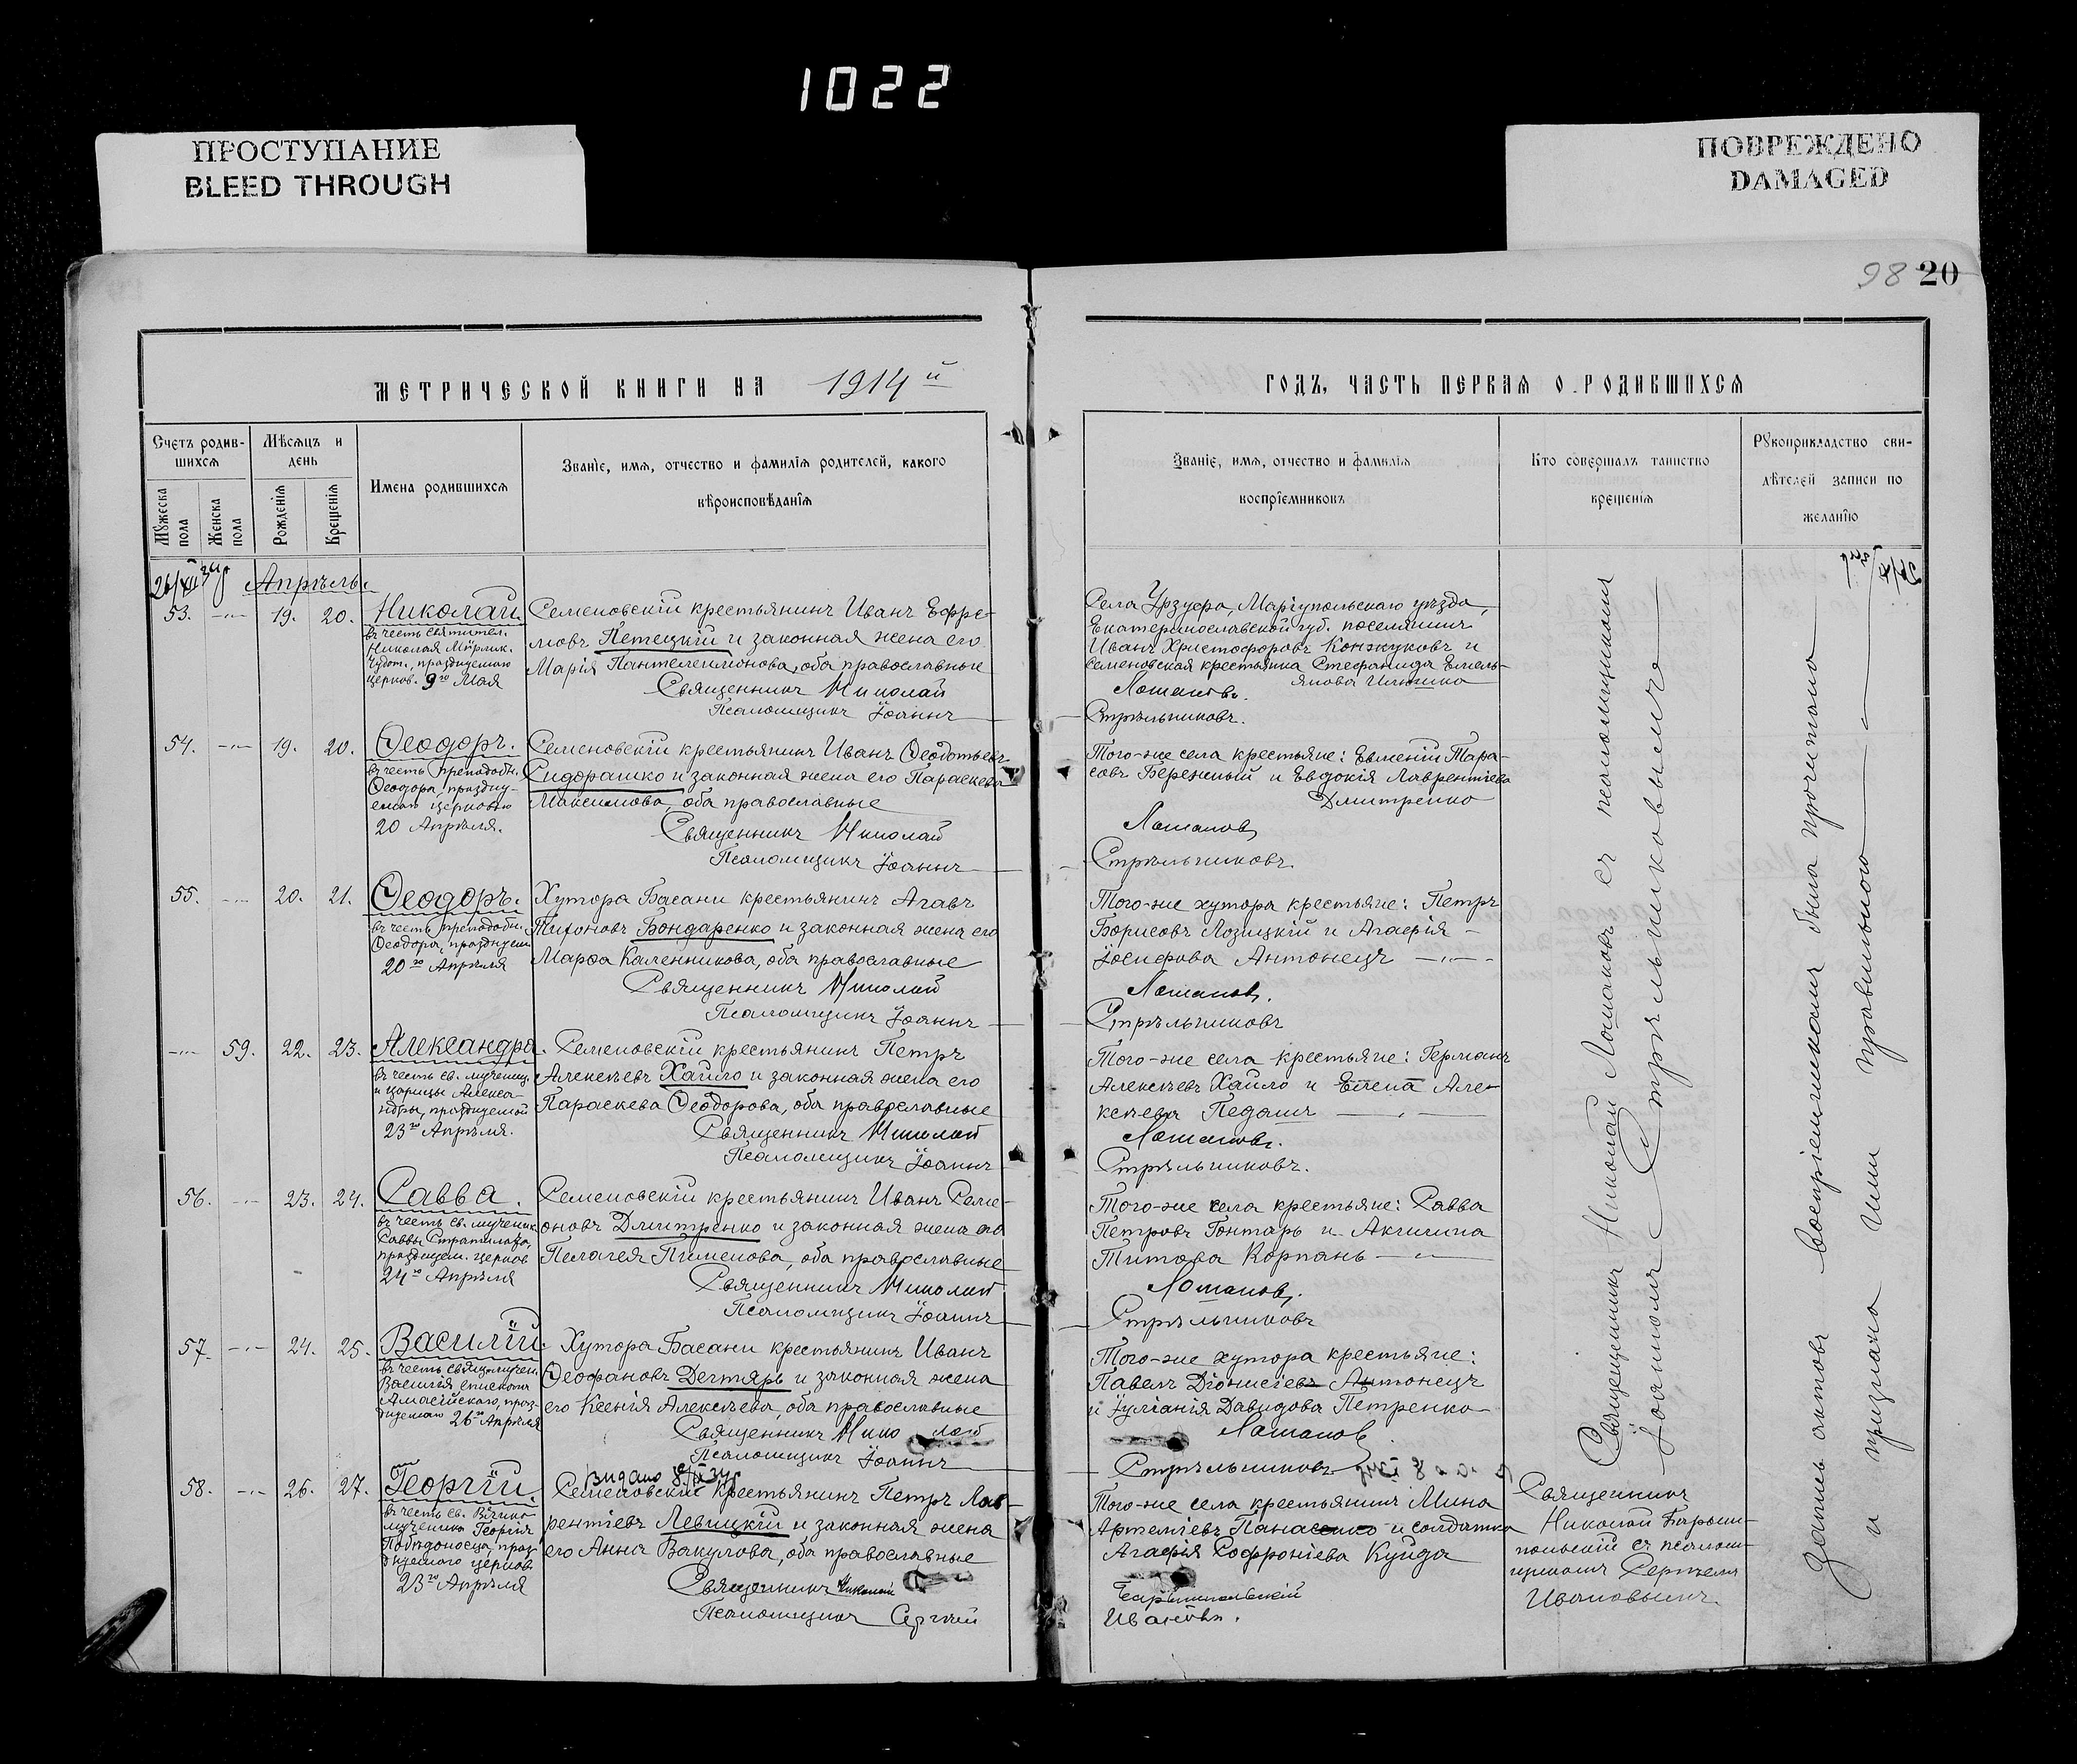 1022
ПРОСТУПАНИЕ
BLEED THROUGH
ПОВРЕЖДЕНО
DAMAGED
98 20
МЕТРИЧЕСКОЙ КНИГИ НА 1914й
ГОДЪ, ЧАСТЬ ПЕРВАЯ О РОДИВШИХСЯ
Счетъ родив-
шихся
Мужеска пола
Женска пола
Мѣсяцъ и
день
Рожденія
Крещенія
Имена родившихся
Званіе, имя, отчество и фамилія родителей, какого
вѣроисповѣданія
Званіе, имя, отчество и фамилія
воспріемниковъ
Кто совершалъ таинство
крещенія
Рукоприкладство сви-
дѣтелей записи по
желанію
Апрѣль.
53. -"- 19. 20. Николай
въ честь святител.
Николая Мирлик.
Чудот., празднуемаго
церков. 9го Мая
Семеновскій крестьянинъ Иванъ Ефре-
мовъ Петецкій и законная жена его
Марія Пантелеимонова, оба православные
Священникъ Николай
Псаломщикъ Іоаннъ
Села Урзуфа, Маріупольскаго уѣзда,
Екатеринославской губ. поселянинъ
Иванъ Христофоровъ Конжуковъ и
Семеновская крестьянка Стефанида Емель-
янова
Ломановъ.
Стрѣльниковъ.
54. -"- 19. 20. Ѳеодоръ.
въ честь преподобн.
Ѳеодора, праздну-
емаго церковью
20 Апрѣля.
Семеновскій крестьянинъ Иванъ Ѳеодотьевъ
Сидорашко и законная жена его Параскева
Максимова, оба православные
Священникъ Николай
Псаломщикъ Іоаннъ
Того-же села крестьяне: Евменій Тара-
совъ Бережный и Евдокія Лаврентіева
Дмитренко
Ломановъ
Стрѣльниковъ.
55. -"- 20. 21. Ѳеодоръ.
въ честь преподобн.
Ѳеодора, празднуем
20го Апрѣля
Хутора Басани крестьянинъ Агавъ
Тихоновъ Бондаренко и законная жена его
Марѳа Каленникова, оба православные
Священникъ Николай
Псаломщикъ Іоаннъ
Того-же хутора крестьяне: Петръ
Борисовъ Лозицкій и Агафія
Іосифова Антонецъ
Ломановъ.
Стрѣльниковъ
-"- 59. 22. 23. Александра.
въ честь св. мучениц.
и царицы Алекса-
ндры, празднуемой
23го Апрѣля.
Семеновскій крестьянинъ Петръ
Алексѣевъ Хайло и законная жена его
Параскева Ѳеодорова, оба православные
Священникъ Николай
Псаломщикъ Іоаннъ
Того-же села крестьяне: Германъ
Алексѣевъ Хайло и Елена Але-
ксѣева Педашъ
Ломановъ.
Стрѣльниковъ.
56. -"- 23. 24. Савва.
въ честь св. мученик
Саввы Стратилата,
празднуем. церков
24го Апрѣля
Семеновскій крестьянинъ Иванъ Семе-
оновъ Дмитренко и законная жена его
Пелагея Пименова, оба православные
Священникъ Николай
Псаломщикъ Іоаннъ
Того-же села крестьяне: Савва
Петровъ Гонтарь и Акилина
Титова Корпань
Ломановъ.
Стрѣльниковъ
57. -"- 24. 25. Василій.
въ честь священномучен.
Василія епископа
Амасійскаго, праз-
днуемаго 26го Апрѣля
Хутора Басани крестьянинъ Иванъ
Ѳеофановъ Дегтярь и законная жена
его Ксенія Алексѣева, оба православные
Священникъ Николай
Псаломщикъ Іоаннъ
Того-же хутора крестьяне:
Павелъ Діонисіевъ Антонецъ
и Іуліанія Давидова Петренко
Ломановъ
Стрѣльниковъ
58. -"- 26. 27. Георгій.
въ честь св. Велико-
мученика Георгія
Побѣдоносца, праз-
днуемаго церков.
23го Апрѣля
Видано
Семеновскій крестьянинъ Петръ Лав-
рентіевъ Левицкій и законная жена
его Анна Вакулова, оба православные
Священникъ Николай
Псаломщикъ Сергѣй
Того-же села крестьянинъ Мина
Артеміевъ Панасенко и солдатка
Агафія Софроніева Куйда
Ивановъ.
Священникъ Николай Ломановъ съ псаломщикомъ
Іоанномъ Стрѣльниковымъ
Священникъ
Николай
съ псалом-
щикомъ Сергѣемъ
Ивановымъ.
Запись актовъ воспріемникамъ была прочитана
и признана ими правильною